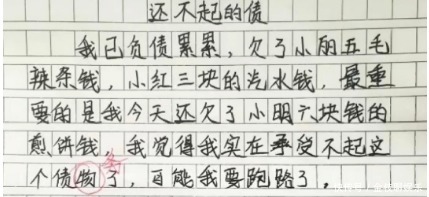 还不起的债
我已负债累累，欠了小丽五毛
辣条钱，小红三块的汽水钱，最重
要的是我今天还欠了小明六块钱的
煎饼钱，我觉得我实在承受不起这
务
个债物了，可能我要跑路了，